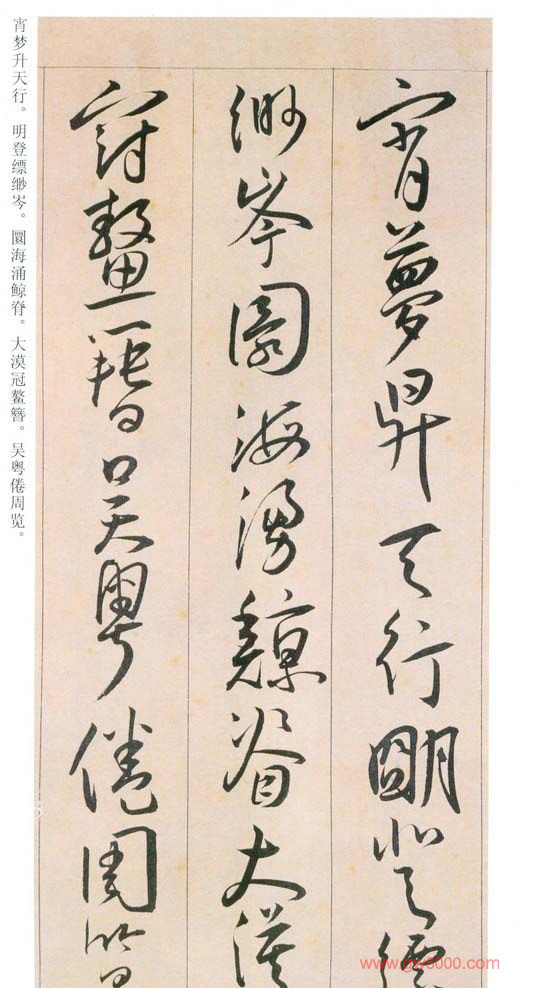 宵夢昇天行明登縹
緲岑圜海湧鯨脊大漠
冠鼇簪吳粤倦周覧
宵梦升天行。明登缥缈岑。圜海涌鲸脊。大漠冠鳌簪。吴粤倦周览。